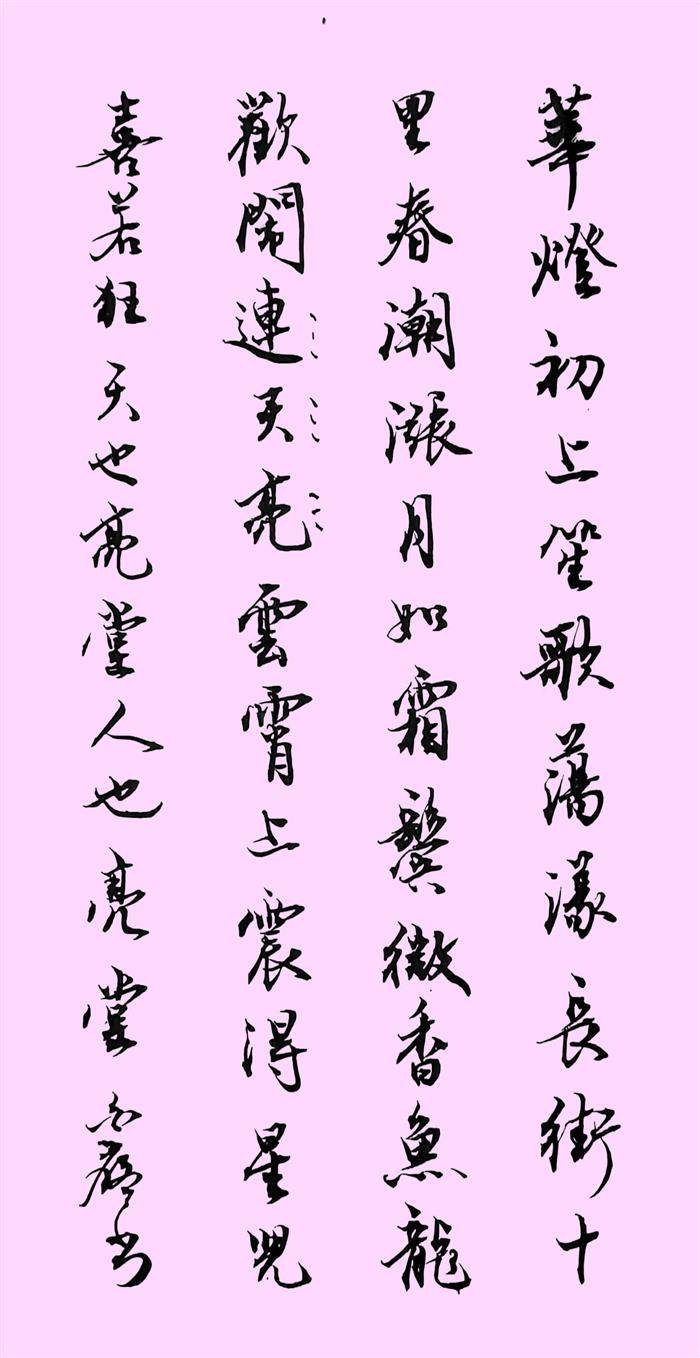 華燈初上笙歌蕩漾長街十
里春潮漲月如霜鬢微香魚龍
歡鬧連天亮雲霄上震得星兒
喜若狂天也亮堂人也亮堂書